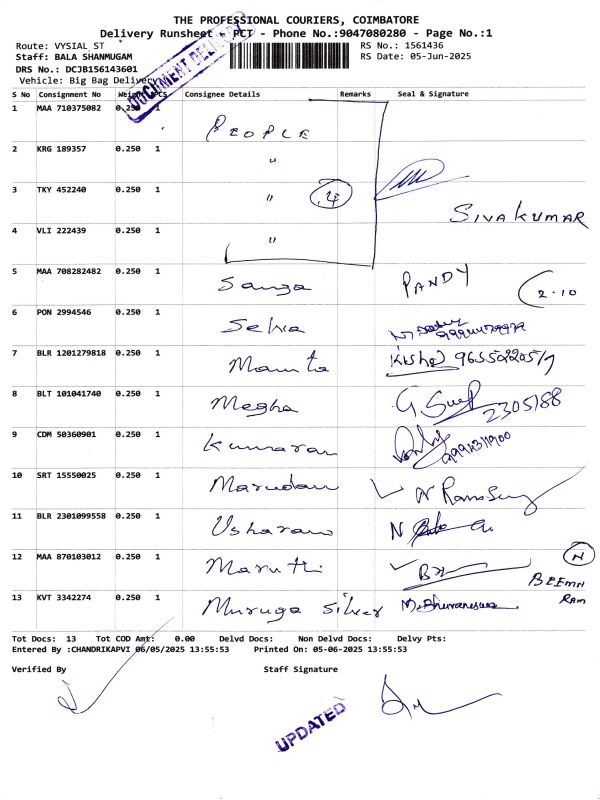 THE PROFESSIONAL COURIERS, COIMBATORE
Delivery Runsheet - PCT - Phone No.:9047080280 - Page No.:1
Route: VYSIAL ST
RS No.: 1561436
Staff: BALA SHANMUGAM
RS Date: 05-Jun-2025
DRS No.: DCJB156143601
Vehicle: Big Bag Delivery
DOCUMENT DELIVERY
S No Consignment No Weight PCS Consignee Details Remarks Seal & Signature
1 MAA 710375082 0.250 1 PEOPLE
2 KRG 189357 0.250 1 "
3 TKY 452240 0.250 1 " 4 SIVAKUMAR
4 VLI 222439 0.250 1 "
5 MAA 708282482 0.250 1 Sanga PANDY 2-10
6 PON 2994546 0.250 1 Selva
7 BLR 1201279818 0.250 1 Mamta
8 BLT 101041740 0.250 1 Megha G 2305188
9 CDM 50360901 0.250 1 Kumaran
10 SRT 15550025 0.250 1 Marudam
11 BLR 2301099558 0.250 1 Usharani N
12 MAA 870103012 0.250 1 Maruthi N BEEMA RAM
13 KVT 3342274 0.250 1 Muruga Silver M. Bhuvaneswa
Tot Docs: 13 Tot COD Amt: 0.00 Delvd Docs: Non Delvd Docs: Delvy Pts:
Entered By :CHANDRIKAPVI 06/05/2025 13:55:53 Printed On: 05-06-2025 13:55:53
Verified By Staff Signature
UPDATED